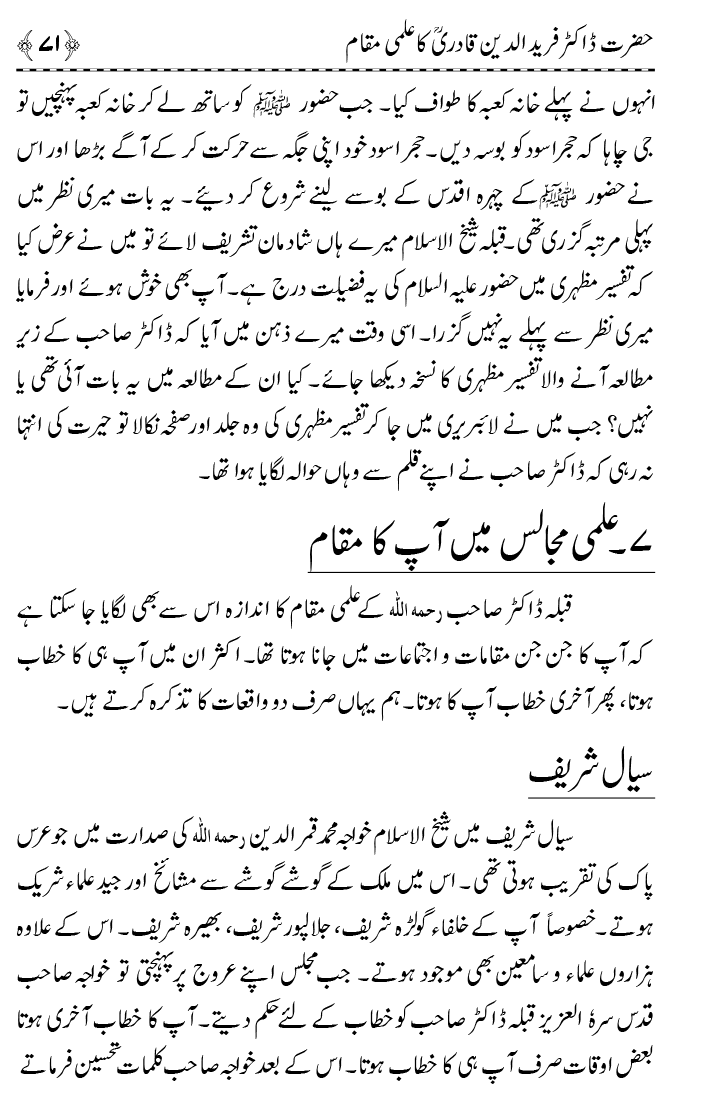 حضرت ڈاکٹر فرید الدین قادریؒ کا علمی مقام ﴿۷۱﴾
انہوں نے پہلے خانہ کعبہ کا طواف کیا۔ جب حضور ﷺ کو ساتھ لے کر خانہ کعبہ پہنچیں تو
جی چاہا کہ حجر اسود کو بوسہ دیں۔ حجر اسود خود اپنی جگہ سے حرکت کر کے آگے بڑھا اور اس
نے حضور ﷺ کے چہرہ اقدس کے بوسے لینے شروع کر دیئے۔ یہ بات میری نظر میں
پہلی مرتبہ گزری تھی۔ قبلہ شیخ الاسلام میرے ہاں شادمان تشریف لائے تو میں نے عرض کیا
کہ تفسیر مظہری میں حضور علیہ السلام کی یہ فضیلت درج ہے۔ آپ بھی خوش ہوئے اور فرمایا
میری نظر سے پہلے یہ نہیں گزرا۔ اسی وقت میرے ذہن میں آیا کہ ڈاکٹر صاحب کے زیر
مطالعہ آنے والا تفسیر مظہری کا نسخہ دیکھا جائے۔ کیا ان کے مطالعہ میں یہ بات آئی تھی یا
نہیں؟ جب میں نے لائبریری میں جا کر تفسیر مظہری کی وہ جلد اور صفحہ نکالا تو حیرت کی انتہا
نہ رہی کہ ڈاکٹر صاحب نے اپنے قلم سے وہاں حوالہ لگایا ہوا تھا۔
۷۔ علمی مجالس میں آپ کا مقام
قبلہ ڈاکٹر صاحب رحمہ اللہ کے علمی مقام کا اندازہ اس سے بھی لگایا جا سکتا ہے
کہ آپ کا جن جن مقامات و اجتماعات میں جانا ہوتا تھا۔ اکثر ان میں آپ ہی کا خطاب
ہوتا، پھر آخری خطاب آپ کا ہوتا۔ ہم یہاں صرف دو واقعات کا تذکرہ کرتے ہیں۔
سیال شریف
سیال شریف میں شیخ الاسلام خواجہ محمد قمر الدین رحمہ اللہ کی صدارت میں جو عرس
پاک کی تقریب ہوتی تھی۔ اس میں ملک کے گوشے گوشے سے مشائخ اور جید علماء شریک
ہوتے۔ خصوصاً آپ کے خلفاء گولڑہ شریف، جلالپور شریف، بھیرہ شریف۔ اس کے علاوہ
ہزاروں علماء و سامعین بھی موجود ہوتے۔ جب مجلس اپنے عروج پر پہنچتی تو خواجہ صاحب
قدس سرہٗ العزیز قبلہ ڈاکٹر صاحب کو خطاب کے لئے حکم دیتے۔ آپ کا خطاب آخری ہوتا
بعض اوقات صرف آپ ہی کا خطاب ہوتا۔ اس کے بعد خواجہ صاحب کلمات تحسین فرماتے